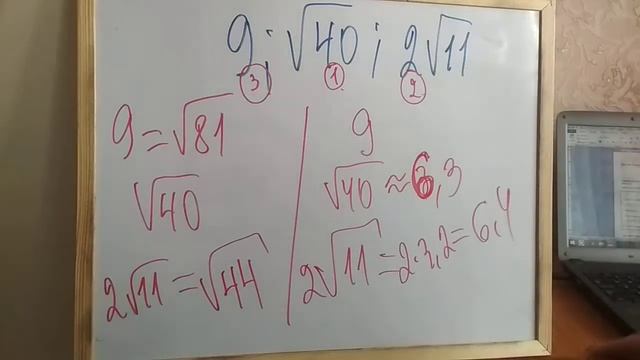 9 ; √40 ; 2√11
3 1 2
9 = √81
√40
2√11 = √44
9
√40 ≈ 6,3
2√11 = 2·3,2 = 6,4